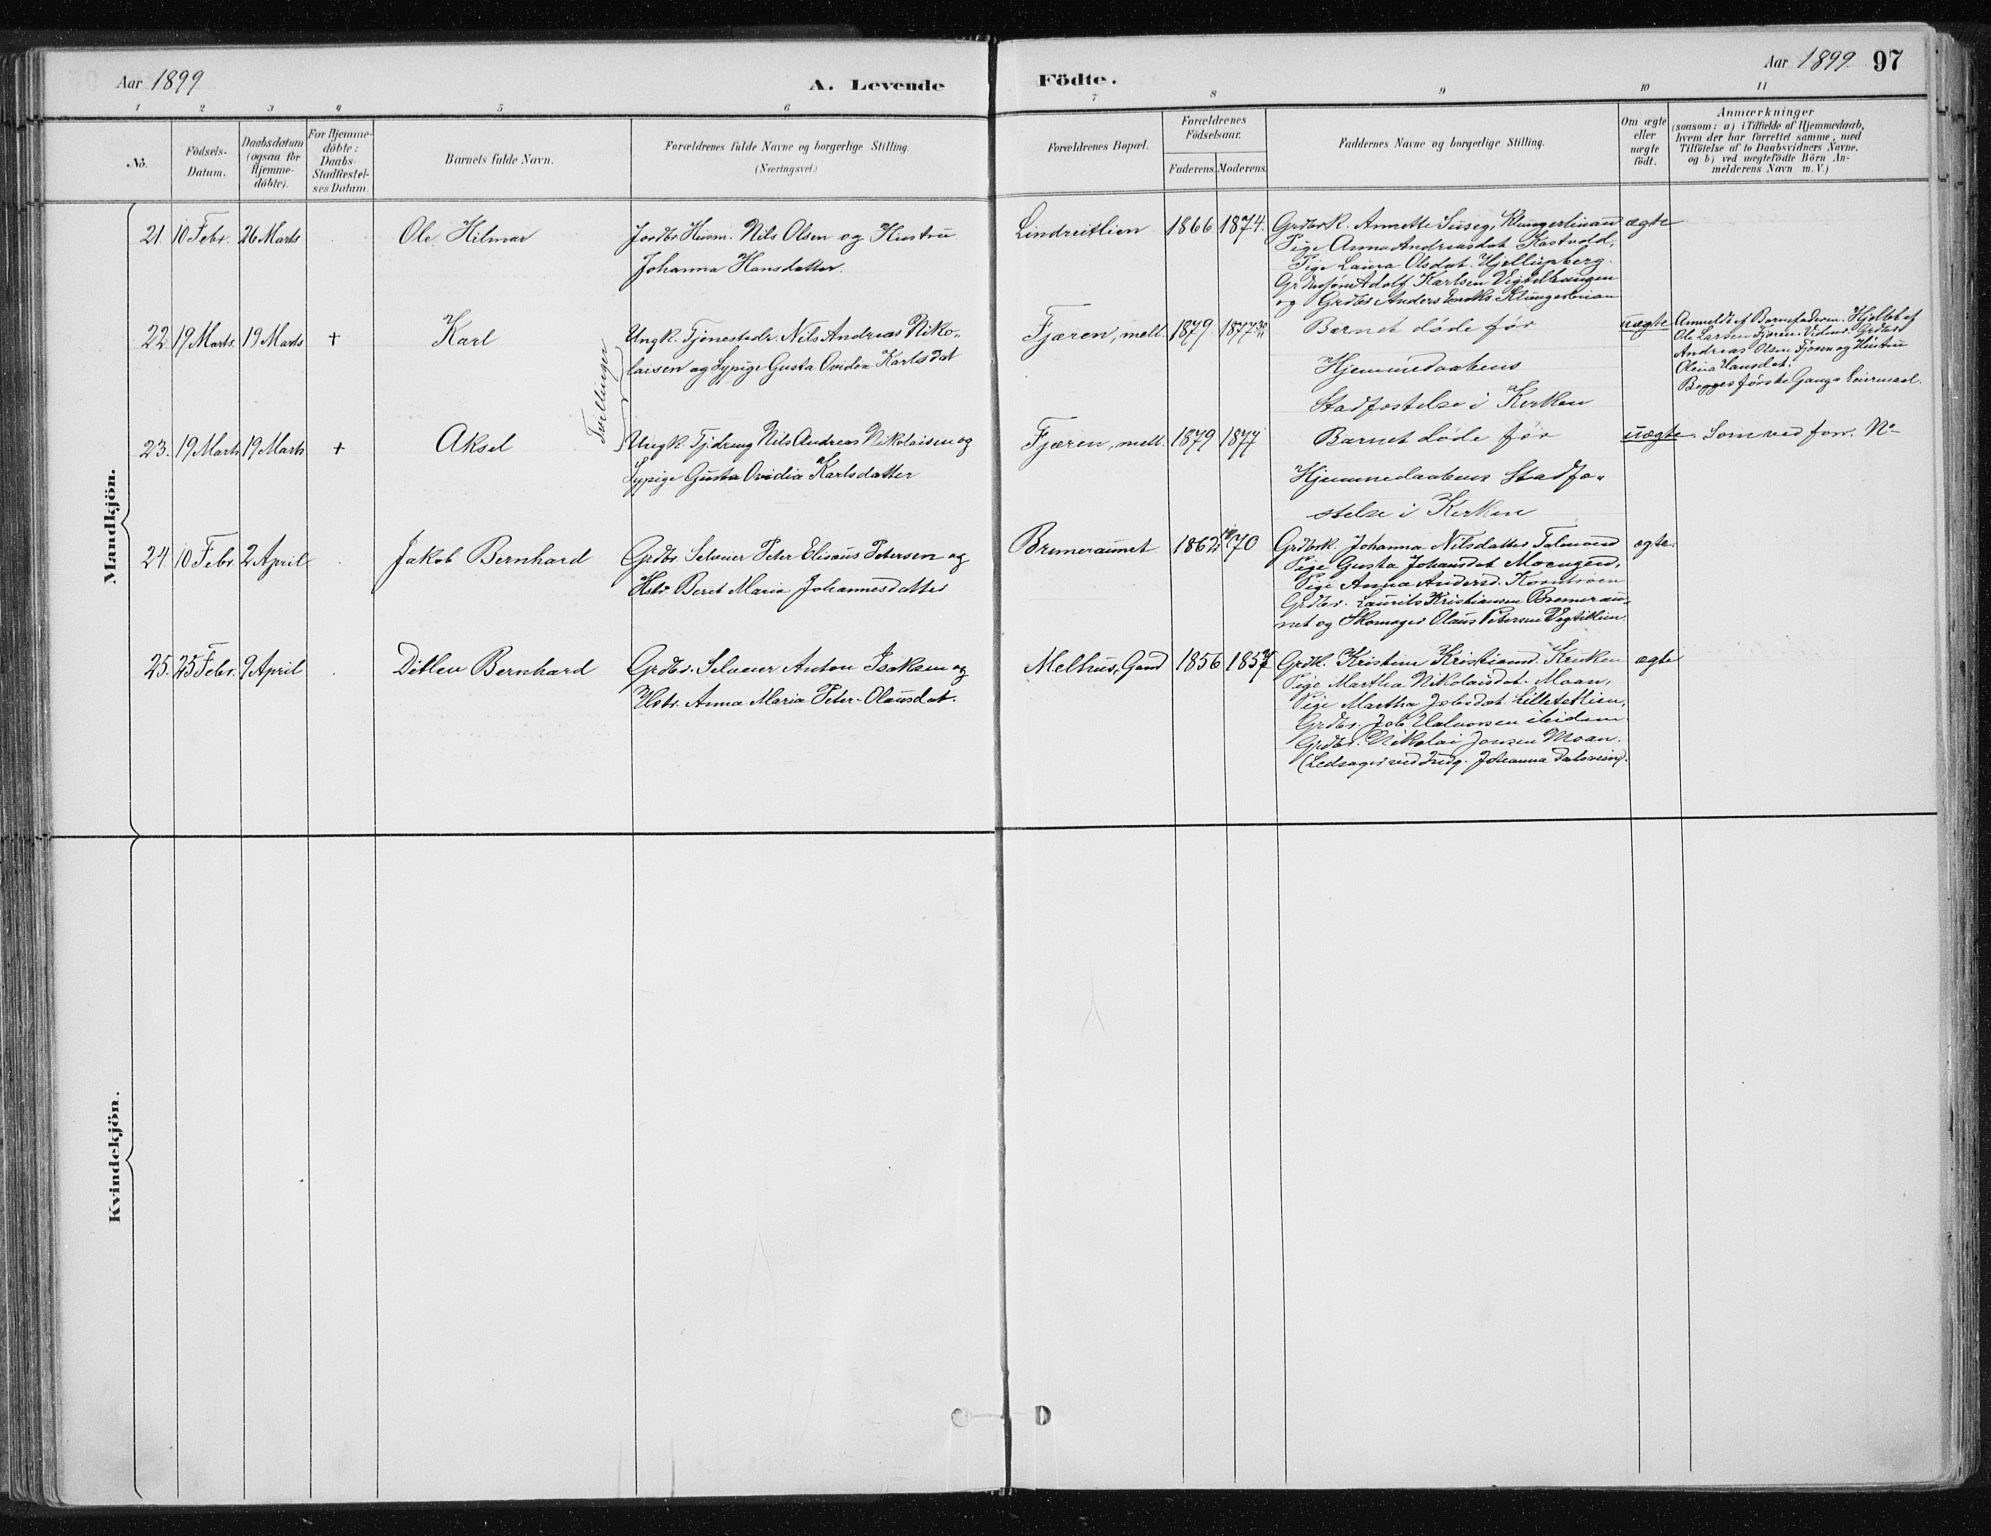 Aar 1899
A. Levende
Födte.
Aar 1899
97
1 2 3 4 5 6 7 8 9 10 11
No.
Födsels-
Datum.
Daabsdatum
(ogsaa for
Hjemme-
döbte).
For Hjemme-
döbte:
Daabs-
Stadfæstel-
ses Datum.
Barnets fulde Navn.
Forældrenes fulde Navne og borgerlige Stilling.
(Næringsvei.)
Forældrenes Bopæl.
Forældrenes
Födselsaar.
Faderens. Moderens.
Faddernes Navne og borgerlige Stilling.
Om ægte
eller
uægte
födt.
Anmærkninger
(saasom: a) i Tilfælde af Hjemmedaab,
hvem der har forrettet samme, med
Tilföielse af to Daabsvidners Navne,
og b) ved uægtefödte Börn An-
melderens Navn m. V.)
Mandkjön.
21. 10 Febr. 26 Marts
Ole Hilmar
Jordbr. Husm. Nils Olsen og Hustru
Johanna Hansdatter.
Lindreitlien 1866 1874.
Grdbrk. Annette Suseg, Klungerbinau
Pige Anna Andreasdat Kastvold,
Pige Laura Olsdat. Hjellupberg.
Grdmssøn Adolf Karlsen
og Grdbr Anders
ægte
22. 19 Marts. 19 Marts +
Karl
Tvillinger
Ungk. Tjenestedr. Nils Andreas Niko-
laisen og Sypige Gusta Ovidia Karlsdat
Fjæren, mell. 1879 1877
Barnet døde før
Hjemmedaabens
Stadfæstelse i Kirken
uægte
Anmeldt af Barnefaderen. Hjdbt af
Ole Larsen Fjæren. Vidner: Grdbr
Andreas Olsen Fjæren og Hustru
Olina Hansdat.
Begges første Gangs Leiermaal.
23. 19 Marts 19 Marts +
Aksel
Ungk. Tjdreng Nils Andreas Nikolaisen og
Sypige Gusta Ovidia Karlsdatter
Fjæren, mell. 1879 1877
Barnet døde før
Hjemmedaabens Stadfæ-
stelse i Kirken
uægte. Som ved forr. No
24. 10 Febr. 2 April
Jakob Bernhard
Grdbr. Selveier Peter Elisæus Petersen og
Hstr. Beret Maria Johannesdatter
Bremeraunet 1862 70
Grdbrk. Johanna Nilsdatter
Pige Gusta Johansdat
Pige Anna Andersd.
Grdbr. Laurits Kristiansen Bremerau-
net og Skomager Olaus Petersen Vegtiklien
ægte.
25. 25 Febr. 9 April
Ditlev Bernhard
Grdbr. Selveier Anton Isaksen og
Hstr. Anna Maria Peter-Olausdat.
Melhus, Gand 1856 1857
Grdk. Kristine Kristiansd. Kruken
Pige Martha Nikolaisdat. Moan,
Pige Martha Jobsdat Lilletetlien,
Grdbr. Job Halvorsen ibidem
Grdbr. Nikolai Jonsen Moan.
(Ledsager ved Indg. Johanna
ægte
Kvindekjön.